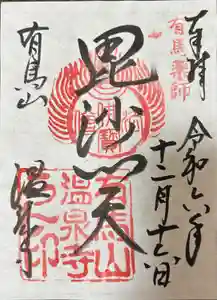 奉拝
有馬薬師
令和六年
十二月十六日
毘沙門天
有馬山
温泉寺
有馬山
温泉寺
之印